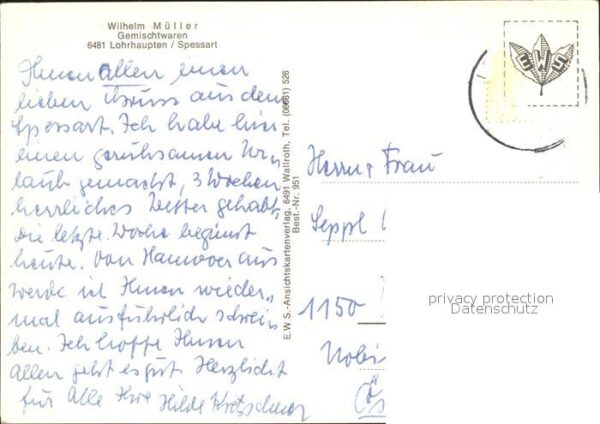 Wilhelm Müller
Gemischtwaren
6481 Lohrhaupten / Spessart
Ihnen allen einen
lieben Gruss aus dem
Spessart. Ich habe hier
einen geruhsamen Ur-
laub gemacht, 3 Wochen
herrliches Wetter gehabt,
die letzte Woche beginnt
heute. Von Hannover aus
werde ich Ihnen wieder
mal ausführlich schrei-
ben. Ich hoffe Ihnen
Allen geht es gut. Herzlichst
für Alle Ihre Hilde Kretschmer
E.W.S.-Ansichtskartenverlag, 6491 Wallroth, Tel. (06661) 526
Best.-Nr. 951
EWS
Herrn + Frau
Seppl
1150
privacy protection
Datenschutz